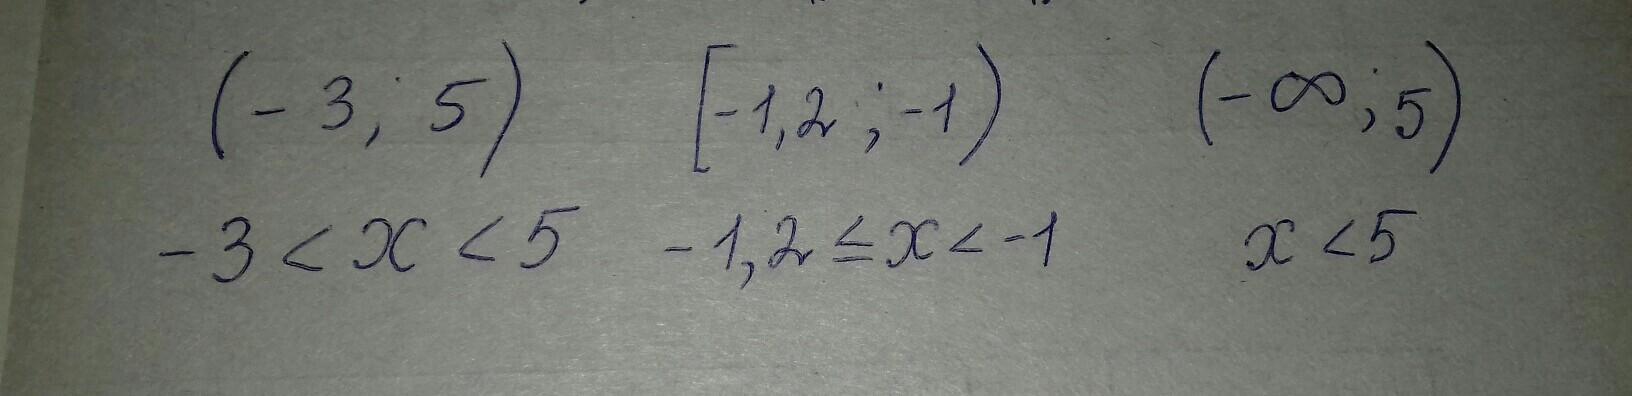 (-3; 5) [-1,2; -1) (-∞; 5)
-3 < x < 5 -1,2 ≤ x < -1 x < 5